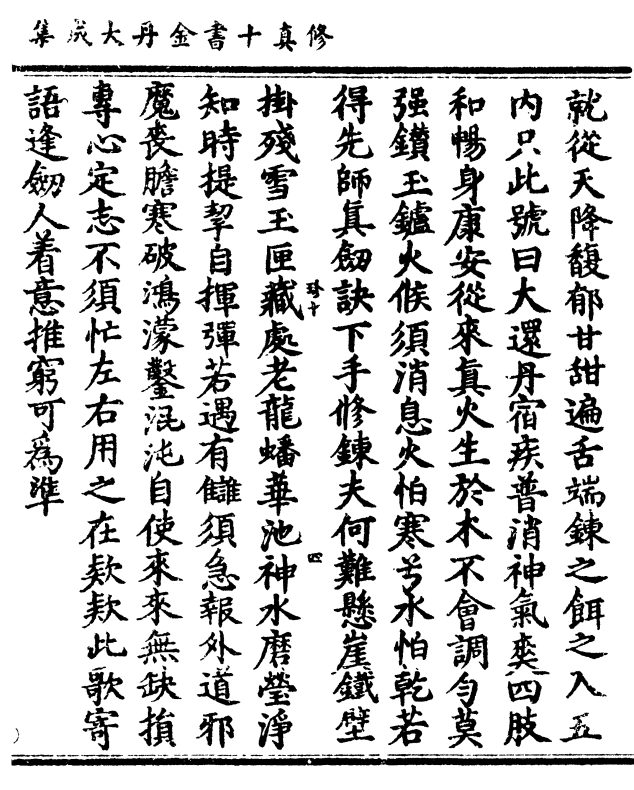 修真十書金丹大成集
就從天降馥郁甘甜遍舌端鍊之餌之入五
內只此號曰大還丹宿疾普消神氣爽四肢
和暢身康安從來眞火生於木不會調勻莫
强鑽玉鑪火候須消息火怕寒兮水怕乾若
得先師眞劒訣下手修鍊夫何難懸崖鐵壁
掛殘雪玉匣藏處老龍蟠華池神水磨瑩淨
珍十
四
知時提挈自揮彈若遇有讎須急報外道邪
魔喪膽寒破鴻濛鑿混沌自使來來無缺損
專心定志不須忙左右用之在欵欵此歌寄
語逢劒人着意推窮可爲準